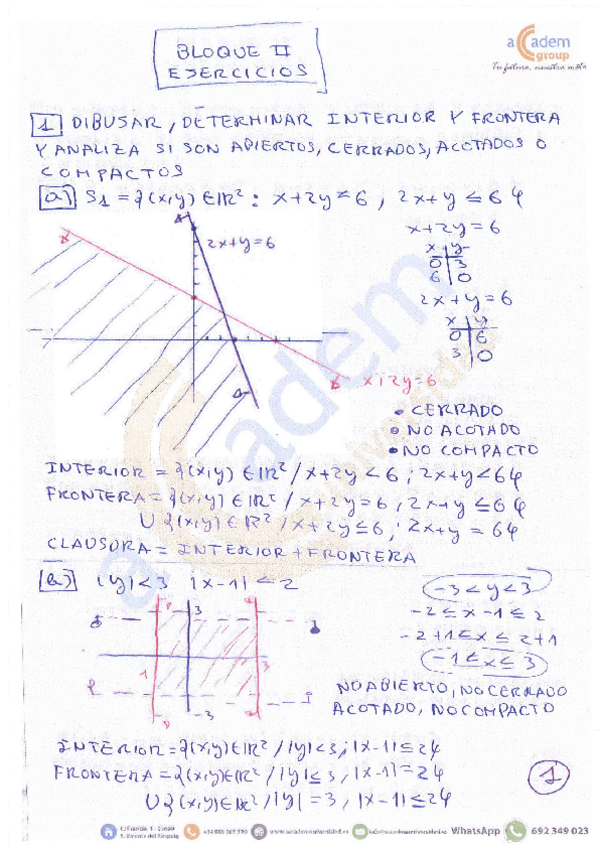 BLOQUE II
EJERCICIOS
aCadem
group
Tu futuro, nuestra meta
1 DIBUJAR, DETERMINAR INTERIOR Y FRONTERA
Y ANALIZA SI SON ABIERTOS, CERRADOS, ACOTADOS O
COMPACTOS
a) S1 = {(x,y) ∈ IR²: x+2y ≤ 6, 2x+y ≤ 6}
x+2y=6
x y
0 3
6 0
2x+y=6
2x+y=6
x y
0 6
3 0
x+2y=6
• CERRADO
• NO ACOTADO
• NO COMPACTO
INTERIOR = {(x,y) ∈ IR² / x+2y < 6; 2x+y < 6}
FRONTERA = {(x,y) ∈ IR² / x+2y = 6, 2x+y ≤ 6}
U {(x,y) ∈ IR² / x+2y ≤ 6, 2x+y = 6}
CLAUSURA = INTERIOR + FRONTERA
b) |y| < 3 |x-1| ≤ 2
-3 < y < 3
-2 ≤ x-1 ≤ 2
-2+1 ≤ x ≤ 2+1
-1 ≤ x ≤ 3
3
1
3
-3
NO ABIERTO, NO CERRADO
ACOTADO, NO COMPACTO
INTERIOR = {(x,y) ∈ IR² / |y| < 3, |x-1| ≤ 2}
FRONTERA = {(x,y) ∈ IR² / |y| ≤ 3, |x-1| = 2}
U {(x,y) ∈ IR² / |y| = 3, |x-1| ≤ 2}
1
WhatsApp 692 349 023